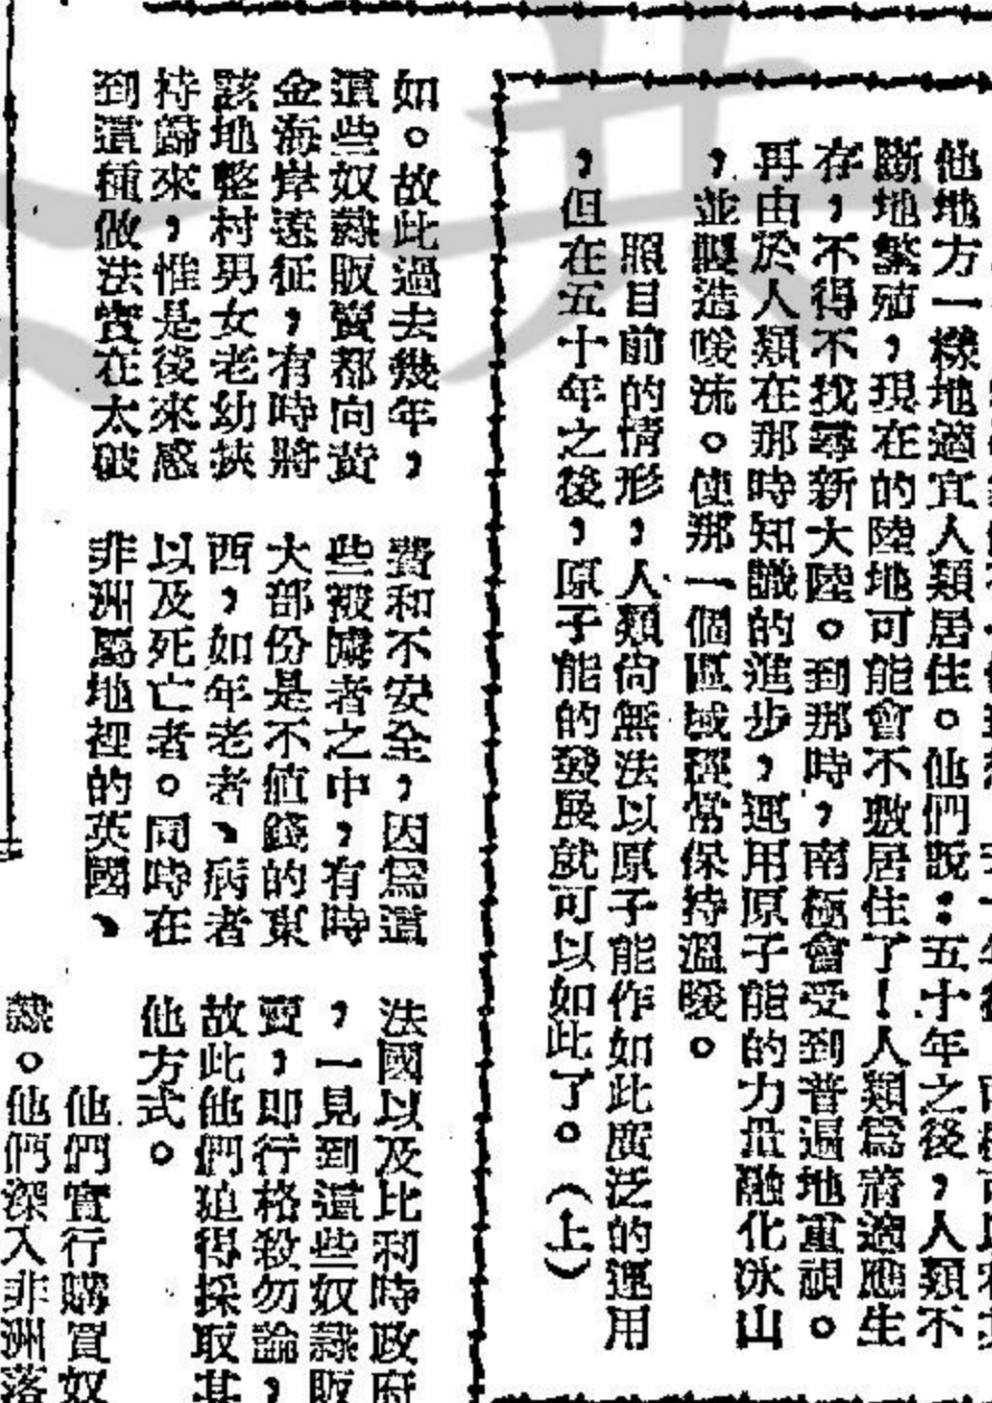 他地方一樣地適宜人類居住。他們說：五十年之後，人類不
斷地繁殖，現在的陸地可能會不敷居住了！人類爲着適應生
存，不得不找尋新大陸。到那時，南極會受到普遍地重視。
再由於人類在那時知識的進步，運用原子能的力量融化冰山
，並製造暖流。使那一個區域經常保持溫暖。
照目前的情形，人類尙無法以原子能作如此廣泛的運用
，但在五十年之後，原子能的發展就可以如此了。（上）
如。故此過去幾年，
這些奴隸販賣都向黃
金海岸遠征，有時將
該地整村男女老幼挾
持歸來，惟是後來感
到這種做法實在太破
費和不安全，因爲這
些被擄者之中，有時
大部份是不値錢的東
西，如年老者、病者
以及死亡者。同時在
非洲屬地裡的英國、
法國以及比利時政府
，一見到這些奴隸販
賣，即行格殺勿論，
故此他們迫得採取其
他方式。
他們實行購買奴
隸。他們深入非洲落